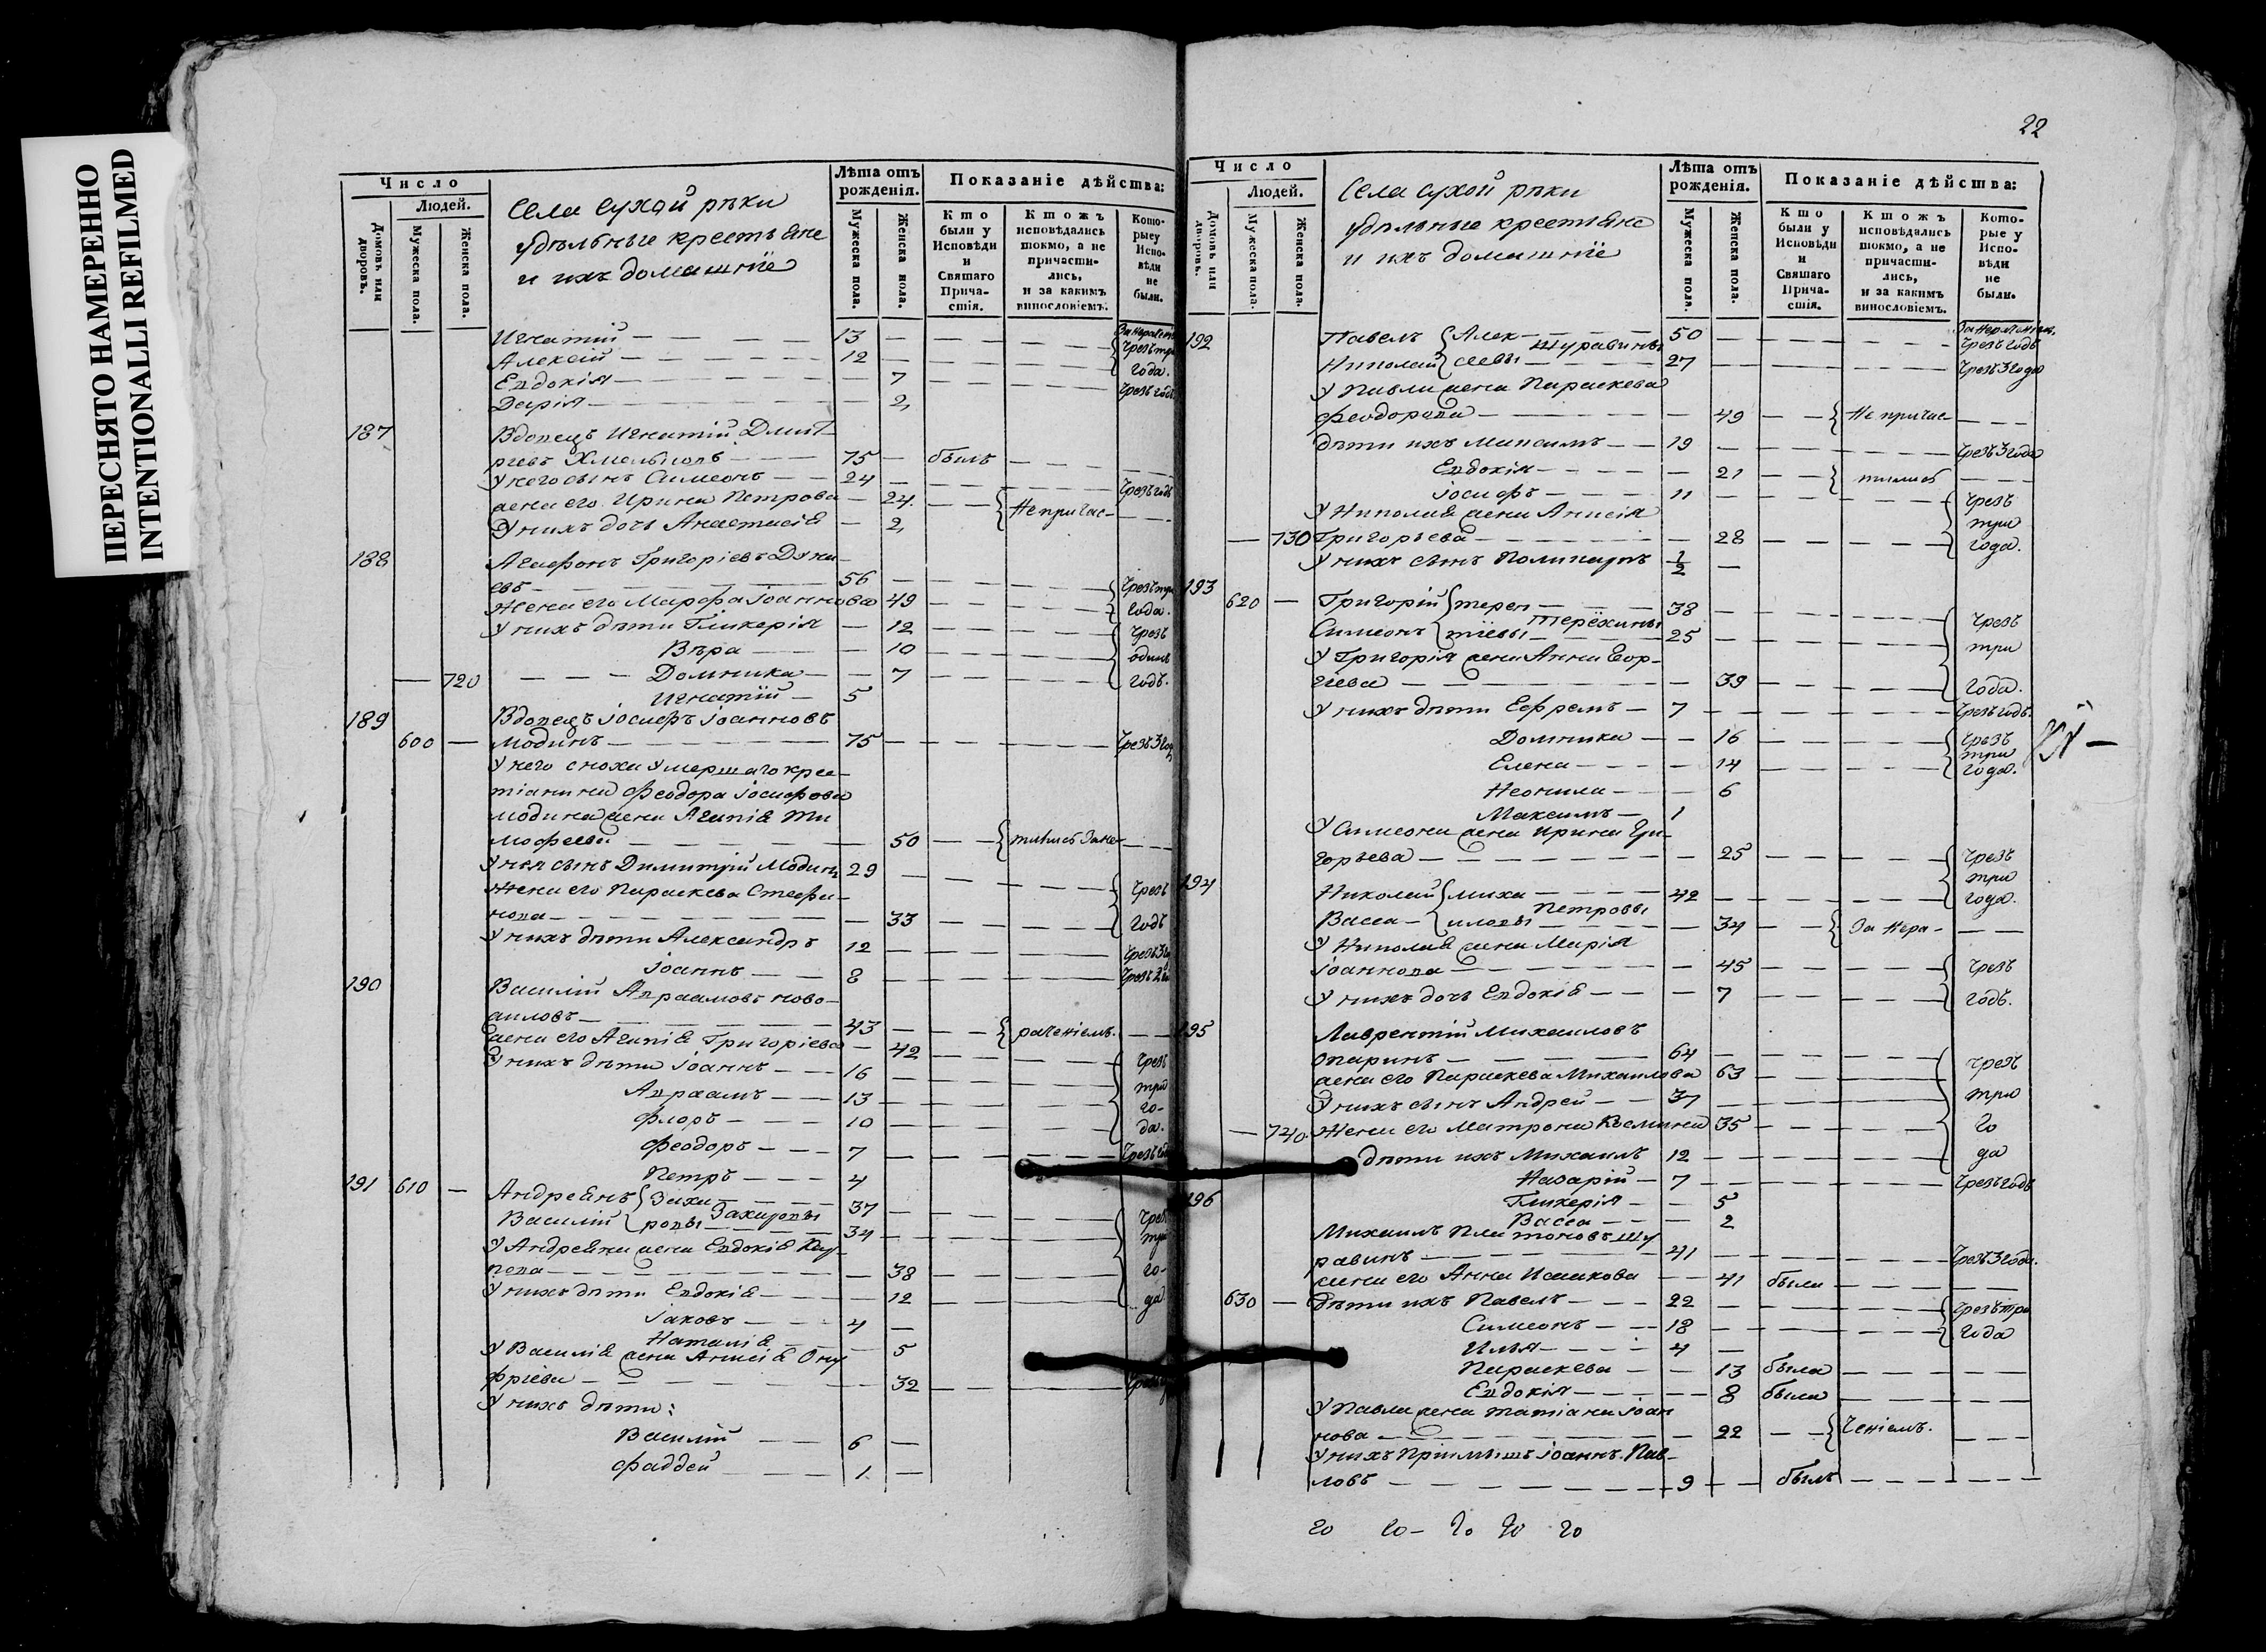 ПЕРЕСНЯТО НАМЕРЕННО
INTENTIONALLI REFILMED
Число
Людей.
Домовъ или дворовъ.
Мужеска пола.
Женска пола.
Села Сухой рѣки
удѣльные крестьяне
и ихъ домашнїе
Лѣта отъ рожденія.
Мужеска пола.
Женска пола.
Показаніе дѣйства:
Кто были у Исповѣди и Святаго Причастія.
Ктожъ исповѣдались токмо, а не причастились, и за какимъ винословіемъ.
Которыеу Исповѣди не были.
Игнатій 13
Алексій 12 Чрезъ три года.
Евдокія 7
Дарія 2 Чрезъ годъ
187 Вдовецъ Игнатій Дмит-
ріевъ Хмельновъ 75 былъ
У него сынъ Симеонъ 24 Чрезъ годъ
жена его Ирина Петрова 24 Не причас-
У нихъ дочь Анастасія 2
188 Агафонъ Григоріевъ
евъ 56 Чрезъ три
Жена его Марфа Іоаннова 49 года.
У нихъ дѣти Гликерія 12 Чрезъ
Вѣра 10 одинъ
720 Домника 7 годъ.
Игнатїй 5
189 Вдовецъ Іосифъ Іоанновъ
600 Модинъ 75 Чрезъ 3 год
У него сноха умершаго крес-
тіанина Феодора Іосифова
Модина жена Агапія Ти
мофеева 50 тились за не-
У нея сынъ Димитрій Модинъ 29
Жена его Параскева Стефа- Чрезъ
нова 33 годъ
У нихъ дѣти Александръ 12 Чрезъ 3 го
Іоаннъ 8 Чрезъ 2
190 Василій Авраамовъ Ново-
аиловъ 43 раченіемъ.
жена его Агапія Григоріева 42 Чрезъ
У нихъ дѣти Іоаннъ 16 три
Авраамъ 13 го-
Флоръ 10 да.
Феодоръ 7 Чрезъ год
Петръ 4
191 610 Андреянъ Заха- 37
Василій ровы Захаровы 34 Чрезъ три
У Андреяна жена Евдокія Кар
пова 38 го-
У нихъ дѣти Евдокія 12 да
Іаковъ 4
Наталія 5
У Василія жена Анисія Ону
фріева 32 Чрезъ
У нихъ дѣти:
Василій 6
Фаддей 1
22
Число
Людей.
Домовъ или дворовъ.
Мужеска пола.
Женска пола.
Села Сухой рѣки
удѣльные крестьяне
и ихъ домашнїе
Лѣта отъ рожденія.
Мужеска пола.
Женска пола.
Показаніе дѣйства:
Кто были у Исповѣди и Святаго Причастія.
Ктожъ исповѣдались токмо, а не причастились, и за какимъ винословіемъ.
Которые у Исповѣди не были.
192 Павелъ Алек- 50 Чрезъ годъ
Николай сеевы Шуравины 27 Чрезъ 3 года
У Павла жена Параскева
Феодорова 49 Не причас-
дѣти ихъ Максимъ 19 Чрезъ 3 года
Евдокія 21 тились
Іосифъ 11 Чрезъ
У Николая жена Анисія три
730 Григорьева 28 года.
У нихъ сынъ Поликарпъ 1/2
193
620 Григорій терен 38 Чрезъ
Симеонъ тїевы Терёхины 25 три
У Григорія жена Анна Геор-
гіева 39 года.
У нихъ дѣти Ефремъ 7 Чрезъ годъ.
Домника 16 Чрезъ
Елена 14 три года.
Неонила 6
Максимъ 1
У Симеона жена Ирина Гри-
горьева 25 Чрезъ
194 три
Николай миха 42 года.
Васса иловы Петровы 34 За нера-
У Николая жена Марія
Іоаннова 45 Чрезъ
У нихъ дочь Евдокія 7 годъ.
195 Лаврентій Михаиловъ
Опаринъ 64 Чрезъ
жена его Параскева Михаилова 63
У нихъ сынъ Андрей 37 три
740 Жена его Матрона Къємина 35 го
дѣти ихъ Михаилъ 12 да
Назарій 7 Чрезъ годъ
196 Гликерія 5
Васса 2
Михаилъ Платоновъ Шу
равинъ 41 Чрезъ 3 года.
жена его Анна Исаакова 41 была
630 Дѣти ихъ Павелъ 22 Чрезъ три
Симеонъ 18 года
Илья 4
Параскева 13 была
Евдокія 8 была
У Павла жена Татіана Іоан
нова 22 ченіемъ.
У нихъ Пріимышъ Іоаннъ Пав-
ловъ 9 былъ
20 20 20 20 20